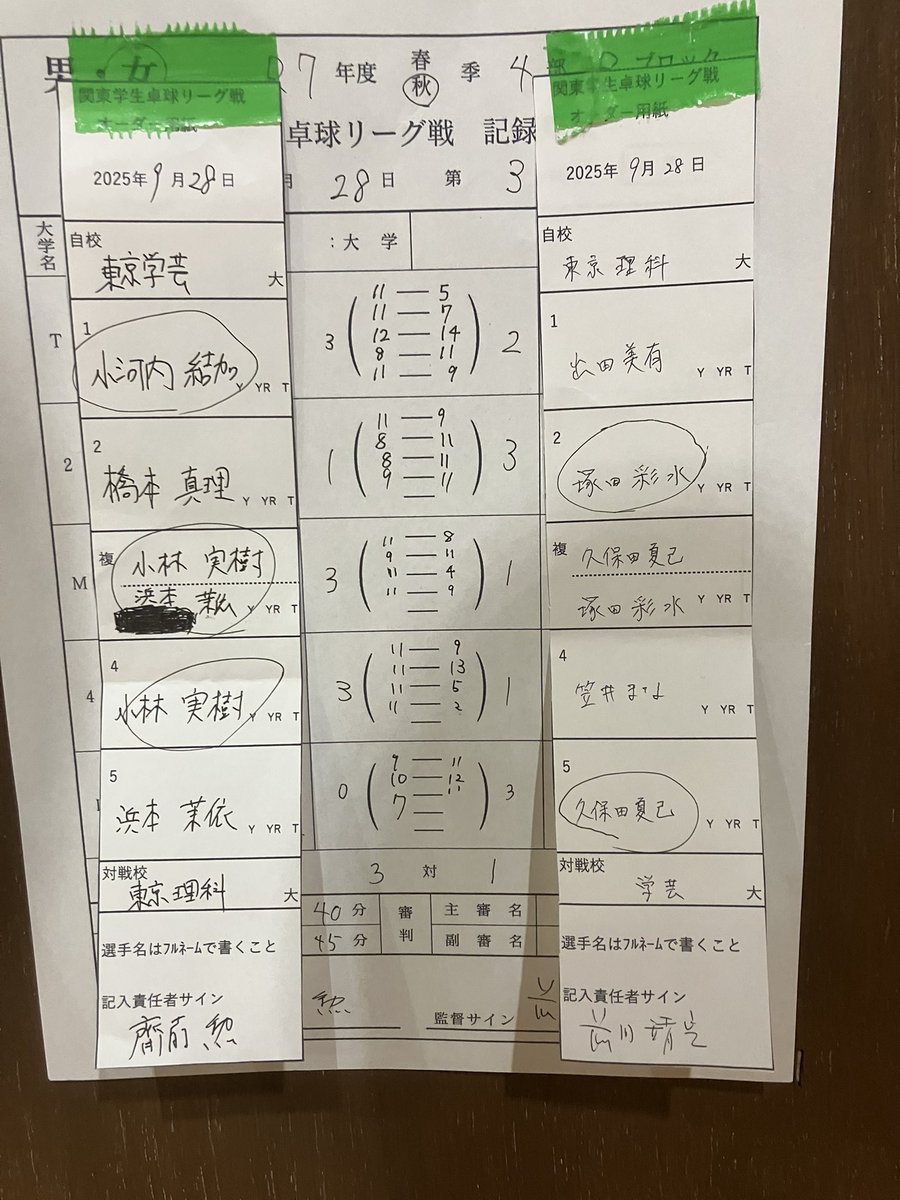 男・女 R7 年度 春 秋 季 4 部 D ブロック
卓球リーグ戦 記録
28 日 第 3
大学名
:大 学
関東学生卓球リーグ戦
オーダー用紙
2025年 9月 28日
自校
東京学芸 大
1
小河内 結加 Y YR T
2
橋本 真理 Y YR T
複 小林 実樹
浜本 Y YR T
4
小林 実樹 Y YR T
5
浜本 茉依 Y YR T
対戦校
東京理科 大
選手名はフルネームで書くこと
記入責任者サイン
齊前 勲
T
3 ( 11 — 5
11 — 7
12 — 14
8 — 11
11 — 9 ) 2
2
1 ( 11 — 9
8 — 11
8 — 11
9 — 11
— ) 3
M
3 ( 11 — 8
9 — 11
11 — 4
11 — 9
— ) 1
4
3 ( 11 — 9
11 — 13
11 — 5
11 — 2
— ) 1
0 ( 9 — 11
10 — 12
7 — 11
—
— ) 3
3 対 1
40 分 審判 主審名
45 分 副審名
勲 監督サイン
関東学生卓球リーグ戦
オーダー用紙
2025年 9月 28日
自校
東京理科 大
1
出田美有 Y YR T
2
塚田彩水 Y YR T
複 久保田夏己
塚田彩水 Y YR T
4
笠井まなよ Y YR T
5
久保田夏己 Y YR T
対戦校
学芸 大
選手名はフルネームで書くこと
記入責任者サイン